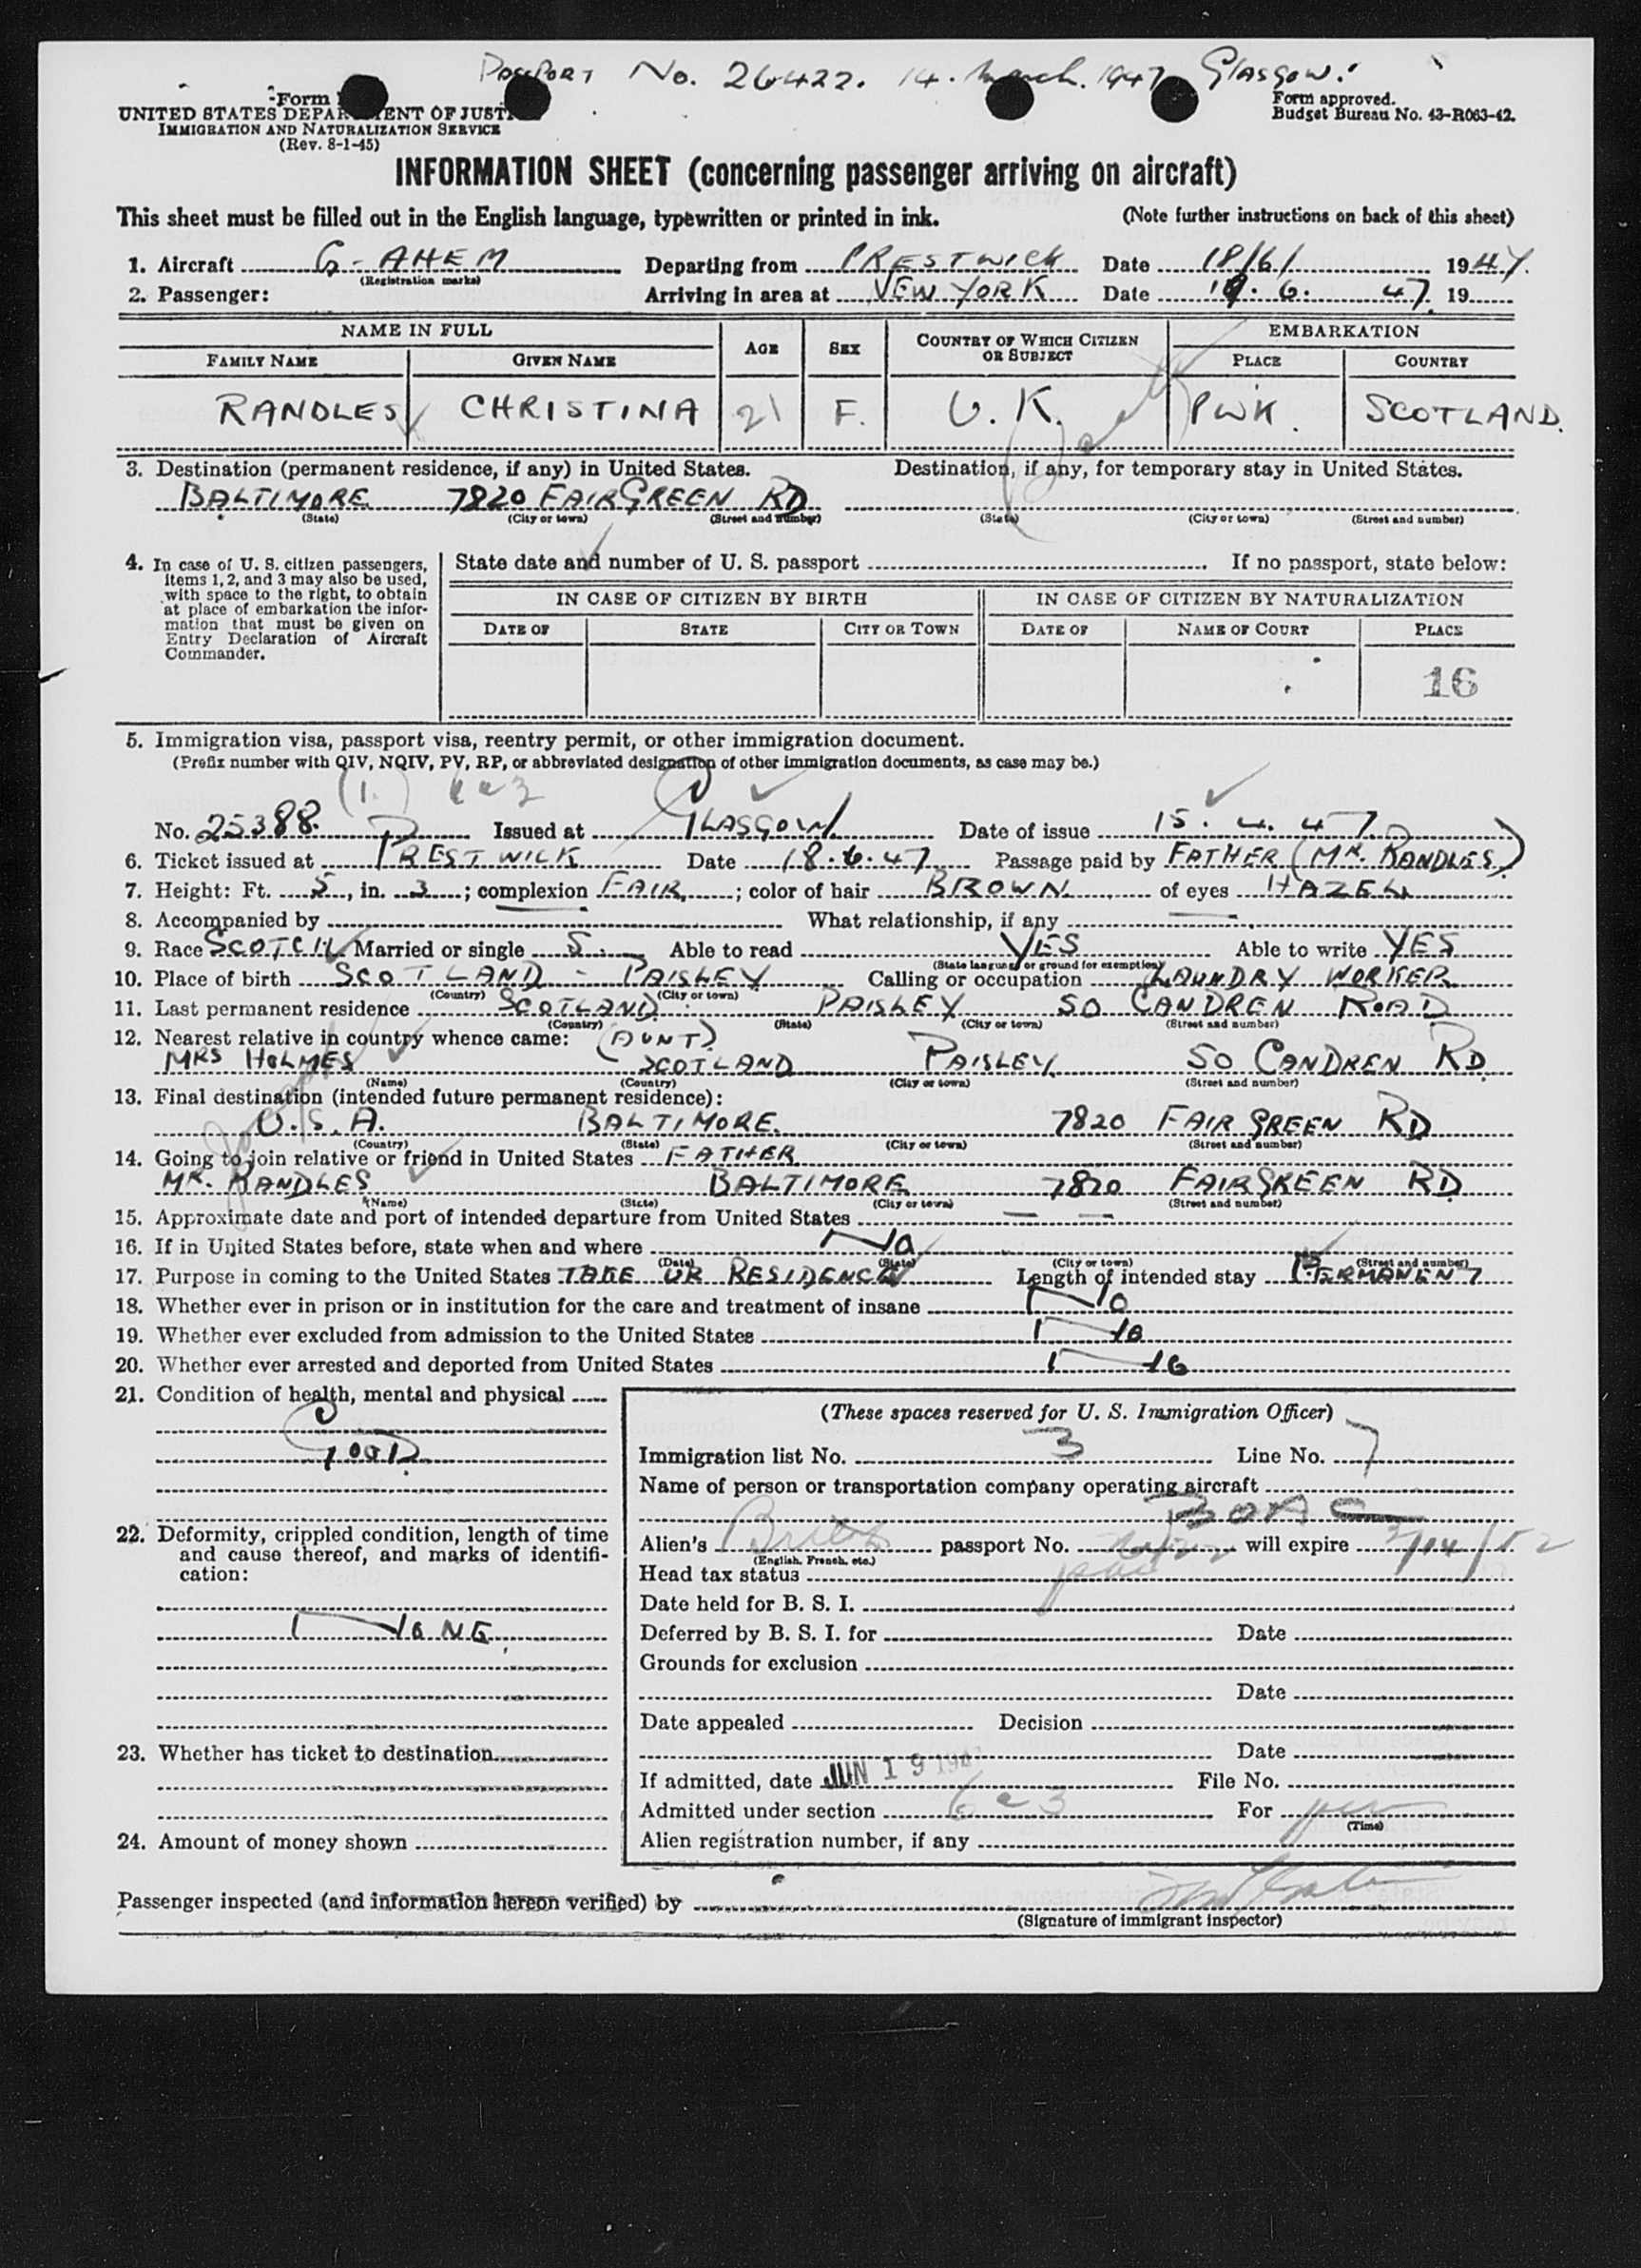 PASSPORT No. 26422. 14. March. 1947 GLASGOW.
Form
Form approved.
UNITED STATES DEPARTMENT OF JUSTICE
Budget Bureau No. 43-R063-42.
IMMIGRATION AND NATURALIZATION SERVICE
(Rev. 8-1-45)
INFORMATION SHEET (concerning passenger arriving on aircraft)
This sheet must be filled out in the English language, typewritten or printed in ink. (Note further instructions on back of this sheet)
1. Aircraft G-AHEM Departing from PRESTWICK Date 18/6/ 1947.
(Registration marks)
2. Passenger: Arriving in area at NEW YORK Date 19.6. 47 19
NAME IN FULL AGE SEX COUNTRY OF WHICH CITIZEN OR SUBJECT EMBARKATION
FAMILY NAME GIVEN NAME PLACE COUNTRY
RANDLES CHRISTINA 21 F. U.K. PWK. SCOTLAND.
3. Destination (permanent residence, if any) in United States. Destination, if any, for temporary stay in United States.
BALTIMORE 7820 FAIRGREEN RD
(State) (City or town) (Street and number) (State) (City or town) (Street and number)
4. In case of U. S. citizen passengers, items 1, 2, and 3 may also be used, with space to the right, to obtain at place of embarkation the information that must be given on Entry Declaration of Aircraft Commander.
State date and number of U. S. passport If no passport, state below:
IN CASE OF CITIZEN BY BIRTH IN CASE OF CITIZEN BY NATURALIZATION
DATE OF STATE CITY OR TOWN DATE OF NAME OF COURT PLACE
16
5. Immigration visa, passport visa, reentry permit, or other immigration document.
(Prefix number with QIV, NQIV, PV, RP, or abbreviated designation of other immigration documents, as case may be.)
(1.) 6a3
No. 25388. Issued at GLASGOW Date of issue 15.4.47
6. Ticket issued at PRESTWICK Date 18.6.47 Passage paid by FATHER (MR. RANDLES)
7. Height: Ft. 5, in. 3; complexion FAIR; color of hair BROWN of eyes HAZEL
8. Accompanied by What relationship, if any —
9. Race SCOTCH Married or single S. Able to read YES Able to write YES
(State language or ground for exemption)
10. Place of birth SCOTLAND - PAISLEY Calling or occupation LAUNDRY WORKER
(Country) (City or town)
11. Last permanent residence SCOTLAND PAISLEY 50 CANDREN ROAD
(Country) (State) (City or town) (Street and number)
12. Nearest relative in country whence came: (AUNT)
MRS HOLMES SCOTLAND PAISLEY 50 CANDREN RD
(Name) (Country) (City or town) (Street and number)
13. Final destination (intended future permanent residence):
U.S.A. BALTIMORE. 7820 FAIRGREEN RD
(Country) (State) (City or town) (Street and number)
14. Going to join relative or friend in United States FATHER
MR. RANDLES BALTIMORE 7820 FAIRGREEN RD
(Name) (State) (City or town) (Street and number)
15. Approximate date and port of intended departure from United States — —
16. If in United States before, state when and where No
(Date) (State) (City or town) (Street and number)
17. Purpose in coming to the United States TAKE UP RESIDENCE Length of intended stay PERMANENT
18. Whether ever in prison or in institution for the care and treatment of insane No
19. Whether ever excluded from admission to the United States No
20. Whether ever arrested and deported from United States No
21. Condition of health, mental and physical
GOOD
22. Deformity, crippled condition, length of time and cause thereof, and marks of identification:
NONE.
23. Whether has ticket to destination
24. Amount of money shown
(These spaces reserved for U. S. Immigration Officer)
Immigration list No. 3 Line No. 7
Name of person or transportation company operating aircraft
BOAC
Alien's Brit passport No. 26422 will expire 3/14/52
(English, French, etc.)
Head tax status paid
Date held for B. S. I.
Deferred by B. S. I. for Date
Grounds for exclusion
Date
Date appealed Decision
Date
If admitted, date JUN 19 1947 File No.
Admitted under section 6a3 For per
(Time)
Alien registration number, if any
Passenger inspected (and information hereon verified) by
(Signature of immigrant inspector)